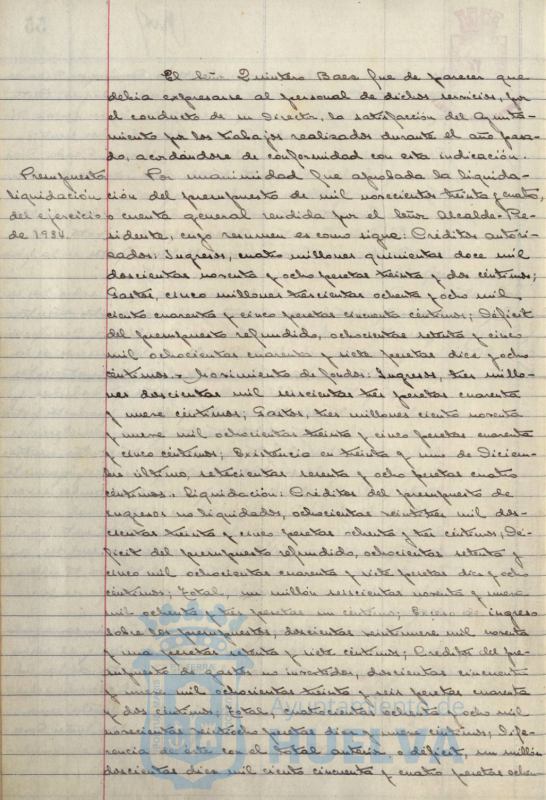 El Señor Quintero Baez fue de parecer que
debía expresarse al personal de dichos servicios, por
el conducto de su Director, la satisfacción del Ayunta-
miento por los trabajos realizados durante el año pasa-
do, acordándose de conformidad con esta indicación.
Presupuesto
liquidación
del ejercicio
de 1934.
Por unanimidad fue aprobada la liquida-
ción del presupuesto de mil novecientos treinta y cuatro,
o cuenta general rendida por el Señor Alcalde-Pre-
sidente, cuyo resumen es como sigue: Créditos autori-
zados: Ingresos, cuatro millones quinientas doce mil
doscientas noventa y ocho pesetas treinta y dos céntimos;
Gastos, cinco millones trescientas ochenta y ocho mil
ciento cuarenta y cinco pesetas cincuenta céntimos; Déficit
del presupuesto refundido, ochocientas setenta y cinco
mil ochocientas cuarenta y siete pesetas diez y ocho
céntimos. Movimiento de fondos: Ingresos, tres millo-
nes doscientas mil seiscientas tres pesetas cuarenta
y nueve céntimos; Gastos, tres millones ciento noventa
y nueve mil ochocientas treinta y cinco pesetas cuarenta
y cinco céntimos; Existencia en treinta y uno de Diciem-
bre último, setecientas sesenta y ocho pesetas cuatro
céntimos. Liquidación: Créditos del presupuesto de
ingresos no liquidados, ochocientas veintitres mil dos-
cientas treinta y cinco pesetas ochenta y tres céntimos; Dé-
ficit del presupuesto refundido, ochocientas setenta y
cinco mil ochocientas cuarenta y siete pesetas diez y ocho
céntimos; Total, un millón seiscientas noventa y nueve
mil ochenta y tres pesetas un céntimo; Exceso de ingreso
sobre los presupuestos, doscientas veintinueve mil noventa
y una pesetas setenta y siete céntimos; Créditos del pre-
supuesto de gastos no invertidos, doscientas cincuenta
y nueve mil ochocientas treinta y seis pesetas cuarenta
y dos céntimos; Total, cuatrocientas ochenta y ocho mil
novecientas veintiocho pesetas diez y nueve céntimos; Dife-
rencia de éste con el total anterior o déficit, un millón
doscientas diez mil ciento cincuenta y cuatro pesetas ochen-
Ayuntamiento de
HUELVA